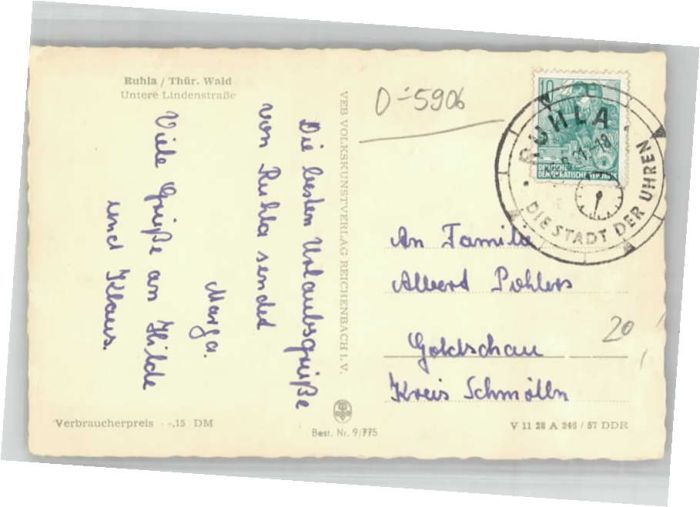 Ruhla / Thür. Wald
Untere Lindenstraße
Die besten Urlaubsgrüße
von Ruhla sendet
Marga.
Viele Grüße an Hilde
und Klaus.
VEB VOLKSKUNSTVERLAG REICHENBACH I. V.
D-5906
10
DEUTSCHE
DEMOKRATISCHE REPUBLIK
RUHLA
DIE STADT DER UHREN
An Familie
Albert Pohlers
Goldschau
Kreis Schmölln
20
Verbraucherpreis -.15 DM
Best. Nr. 9/775
V 11 28 A 246 / 57 DDR